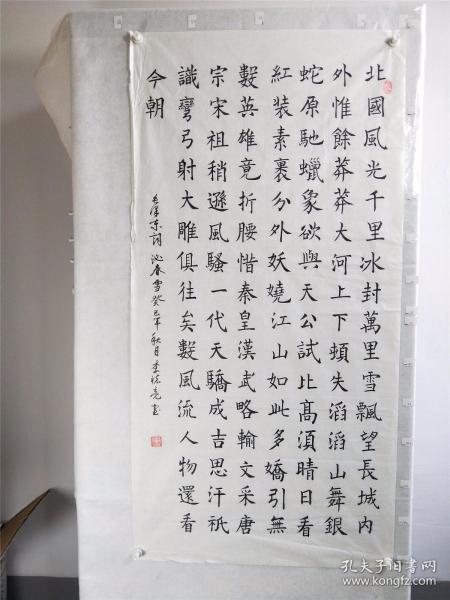 北國風光千里冰封萬里雪飄望長城内
外惟餘莽莽大河上下頓失滔滔山舞銀
蛇原馳蠟象欲與天公試比高須晴日看
紅装素裹分外妖嬈江山如此多嬌引無
數英雄竟折腰惜秦皇漢武略輸文采唐
宗宋祖稍遜風騷一代天驕成吉思汗祇
識彎弓射大雕俱往矣數風流人物還看
今朝
毛澤東詞沁春雪癸巳年秋月李亮書
孔夫子旧书网
www.kongfz.com